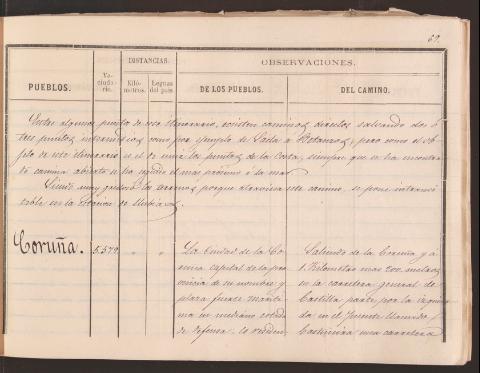 69.
DISTANCIAS. OBSERVACIONES.
PUEBLOS. Ve-cinda-rio. Kiló-metros. Leguas del país. DE LOS PUEBLOS. DEL CAMINO.
Entre algunos puntos de este itinerario, existen caminos directos salvando dos ó
tres puntos intermedios como por ejemplo de Sada á Betanzos, pero como el ob-
jeto de este itinerario es el de unir los puntos de la Costa, siempre que se ha encontra-
do camino abierto se ha seguido el mas próximo á la mar.
Siendo muy quebrado los terrenos porque atraviesa este camino, se pone intransi-
table en la Estacion de lluvias.
Coruña. 5.579. " "
La Ciudad de la Co-
ruña capital de la pro-
vincia de su nombre y
plaza fuerte maríti-
ma en mediano estado
de defensa, la
Saliendo de la Coruña y á
1 Kilometro mas 200 metros
en la carretera general de
Castilla parte por la izquier-
da en el Puente
una carretera